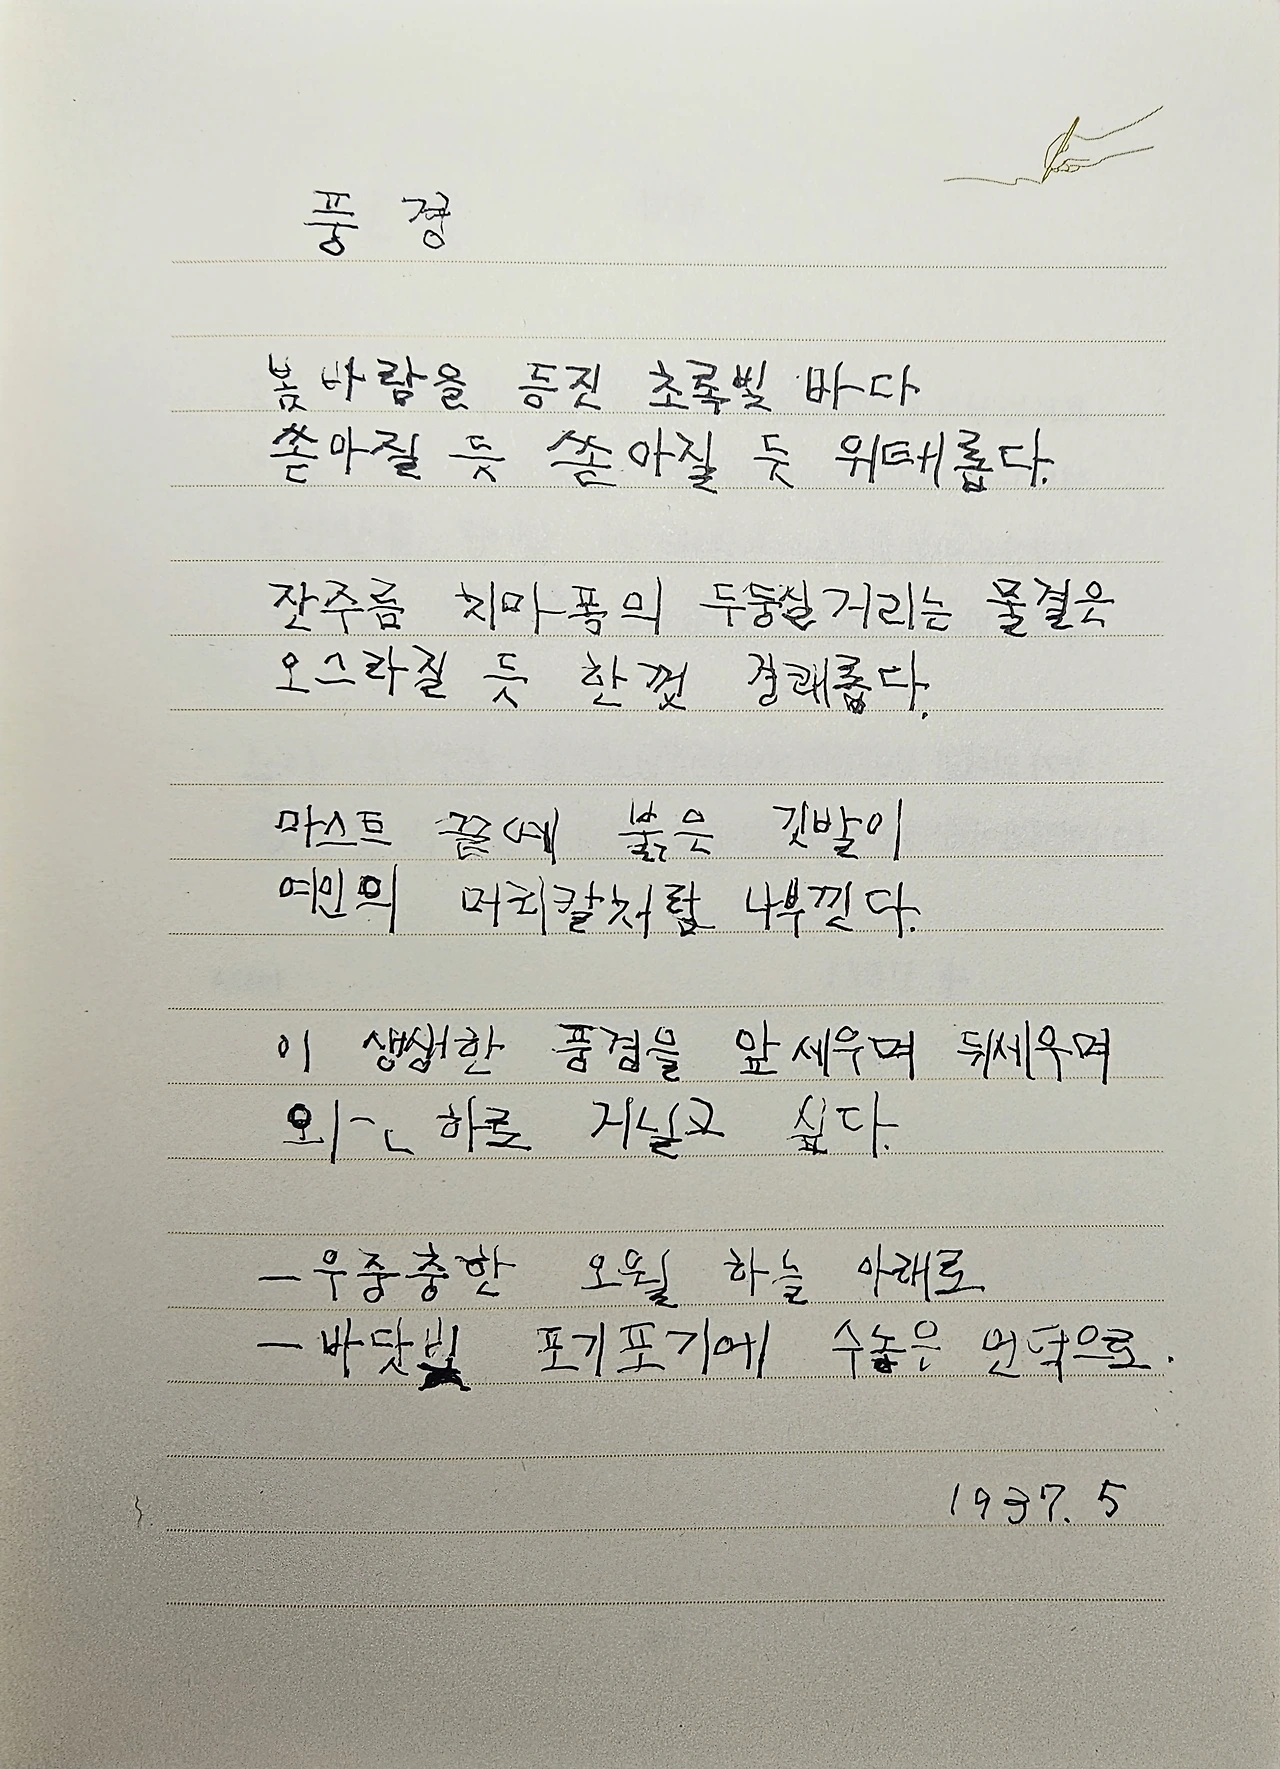 풍 경
봄바람을 등진 초록빛 바다
쏟아질 듯 쏟아질 듯 위태롭다.
잔주름 치마폭의 두둥실거리는 물결은
오스라질 듯 한껏 경쾌롭다.
마스트 끝에 붉은 깃발이
여인의 머리칼처럼 나부낀다.
이 생생한 풍경을 앞세우며 뒤세우며
외ㅡㄴ 하로 거닐고 싶다.
ㅡ우중충한 오월 하늘 아래로
ㅡ바닷빛 포기포기에 수놓은 언덕으로.
1937. 5